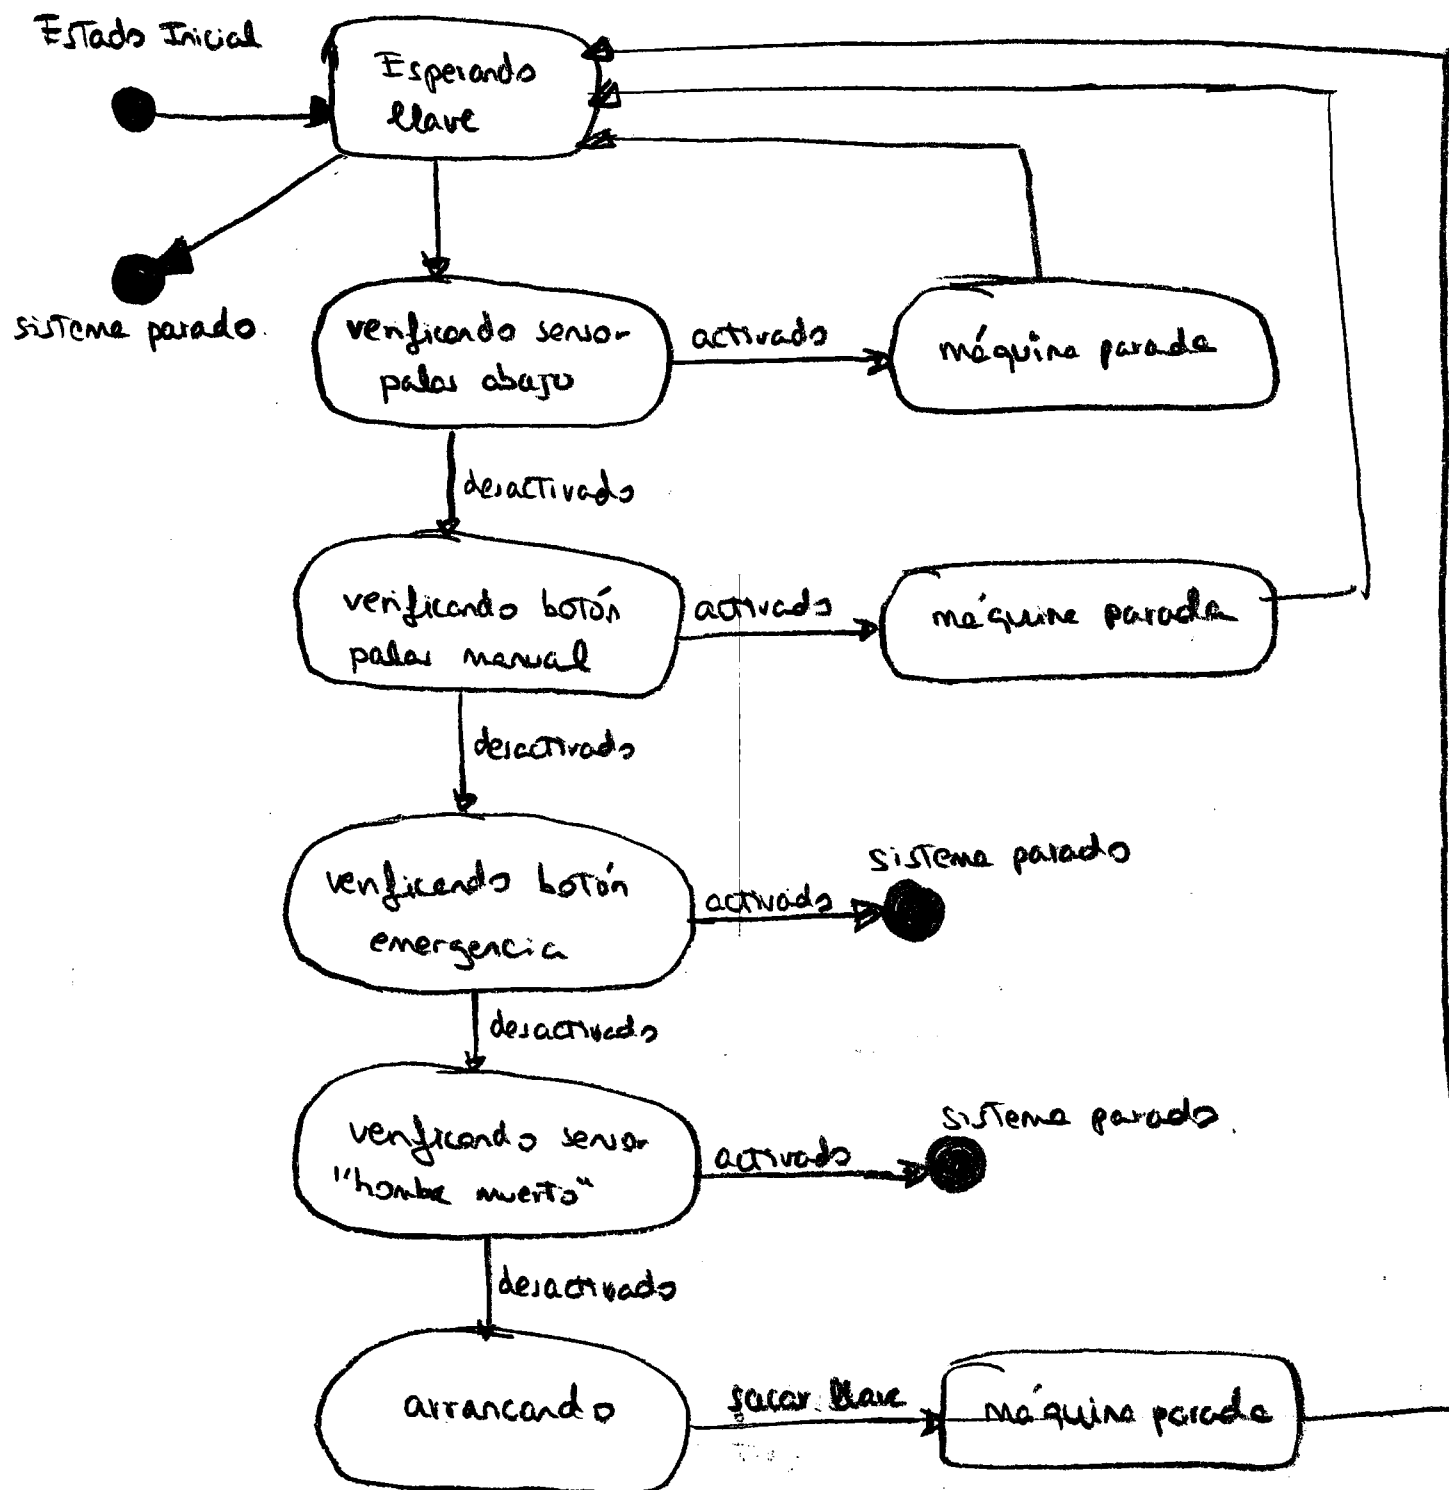 Estado Inicial
Esperando
llave
sistema parado.
verificando sensor
palas abajo
activado
máquina parada
desactivado
verificando botón
palas manual
activado
máquina parada
desactivado
verificando botón
emergencia
activado
sistema parado
desactivado
verificando sensor
"hombre muerto"
activado
sistema parado.
desactivado
arrancando
sacar llave
máquina parada